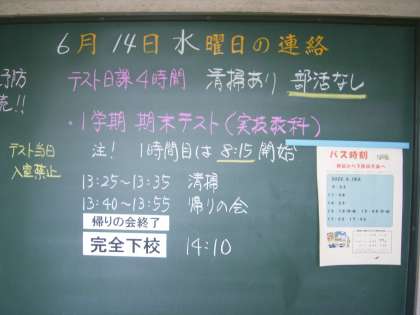 6月14日水曜日の連絡
予防
テスト日課4時間 清掃あり 部活なし
・1学期 期末テスト(実技教科)
テスト当日
入室禁止
注! 1時間目は8:15開始
13:25～13:35 清掃
13:40～13:55 帰りの会
帰りの会終了
完全下校 14:10
バス時刻